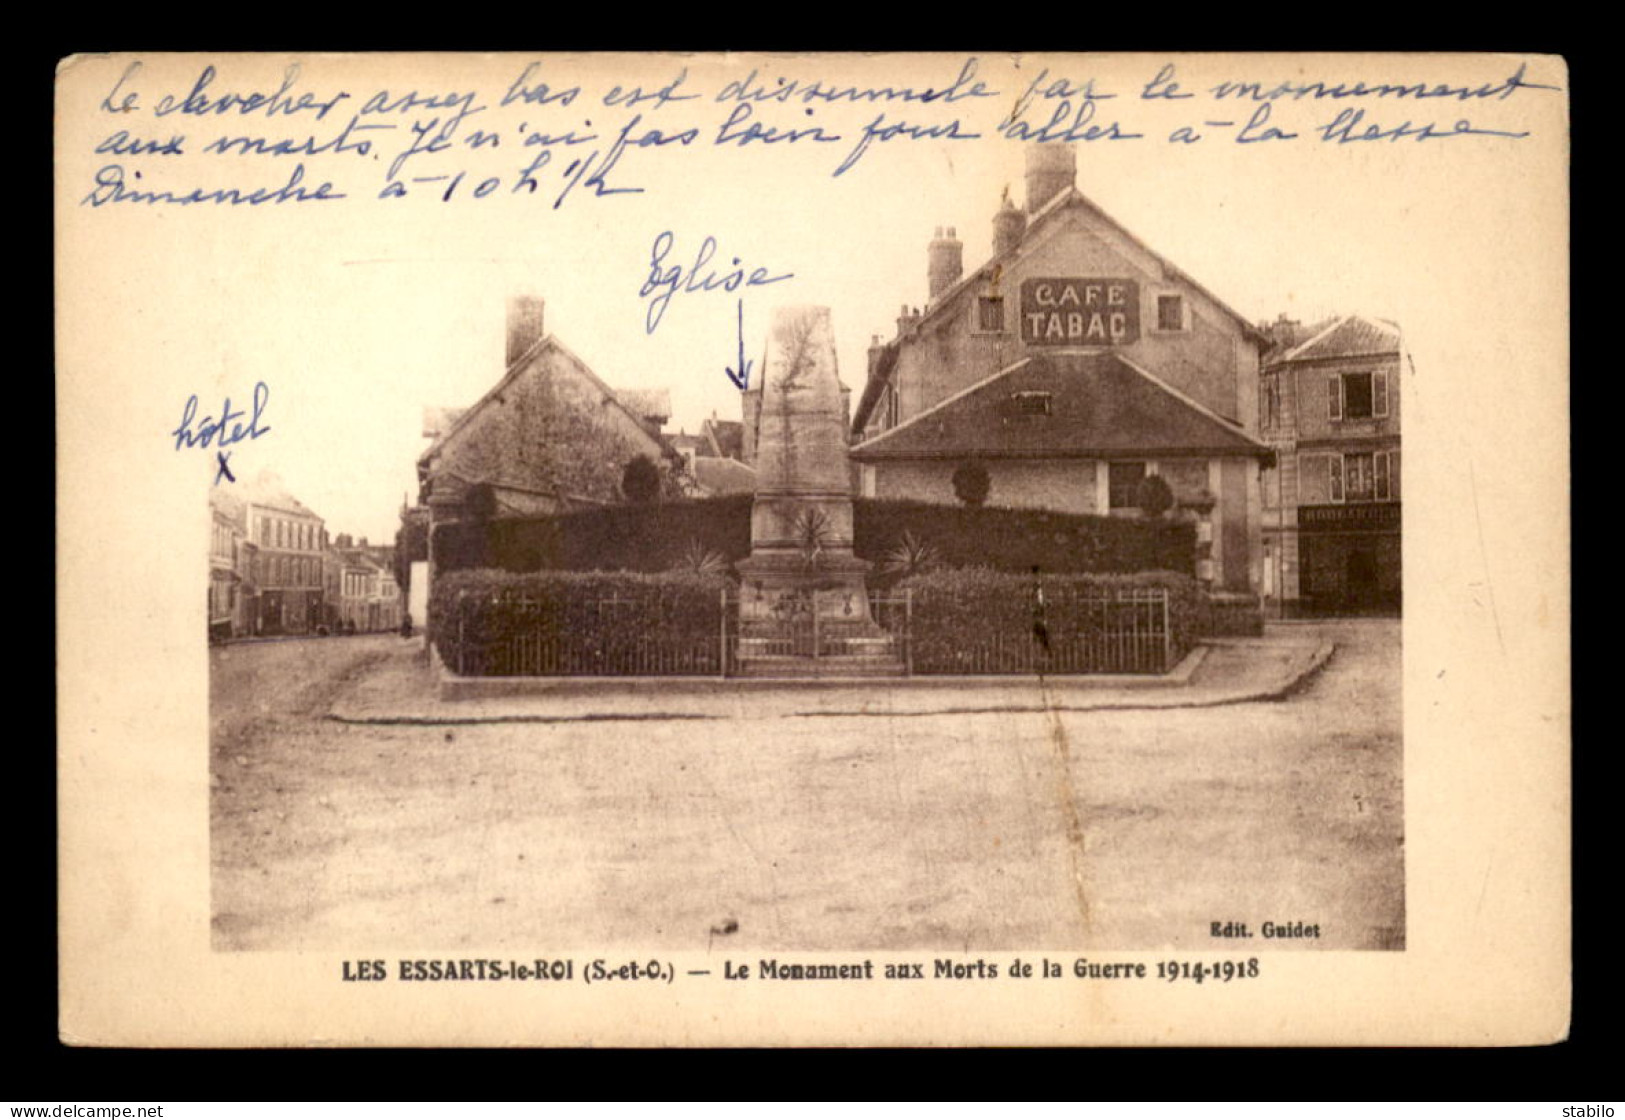 Le clevcher assez bas est dissumule par le monument
aux morts. Je n'ai pas loin pour aller à la Messe
Dimanche à 10 h 1/2
Eglise
hôtel
x
CAFÉ
TABAC
Edit. Guidet
LES ESSARTS-le-ROI (S.-et-O.) — Le Monument aux Morts de la Guerre 1914-1918
delcampe.net
stabilo